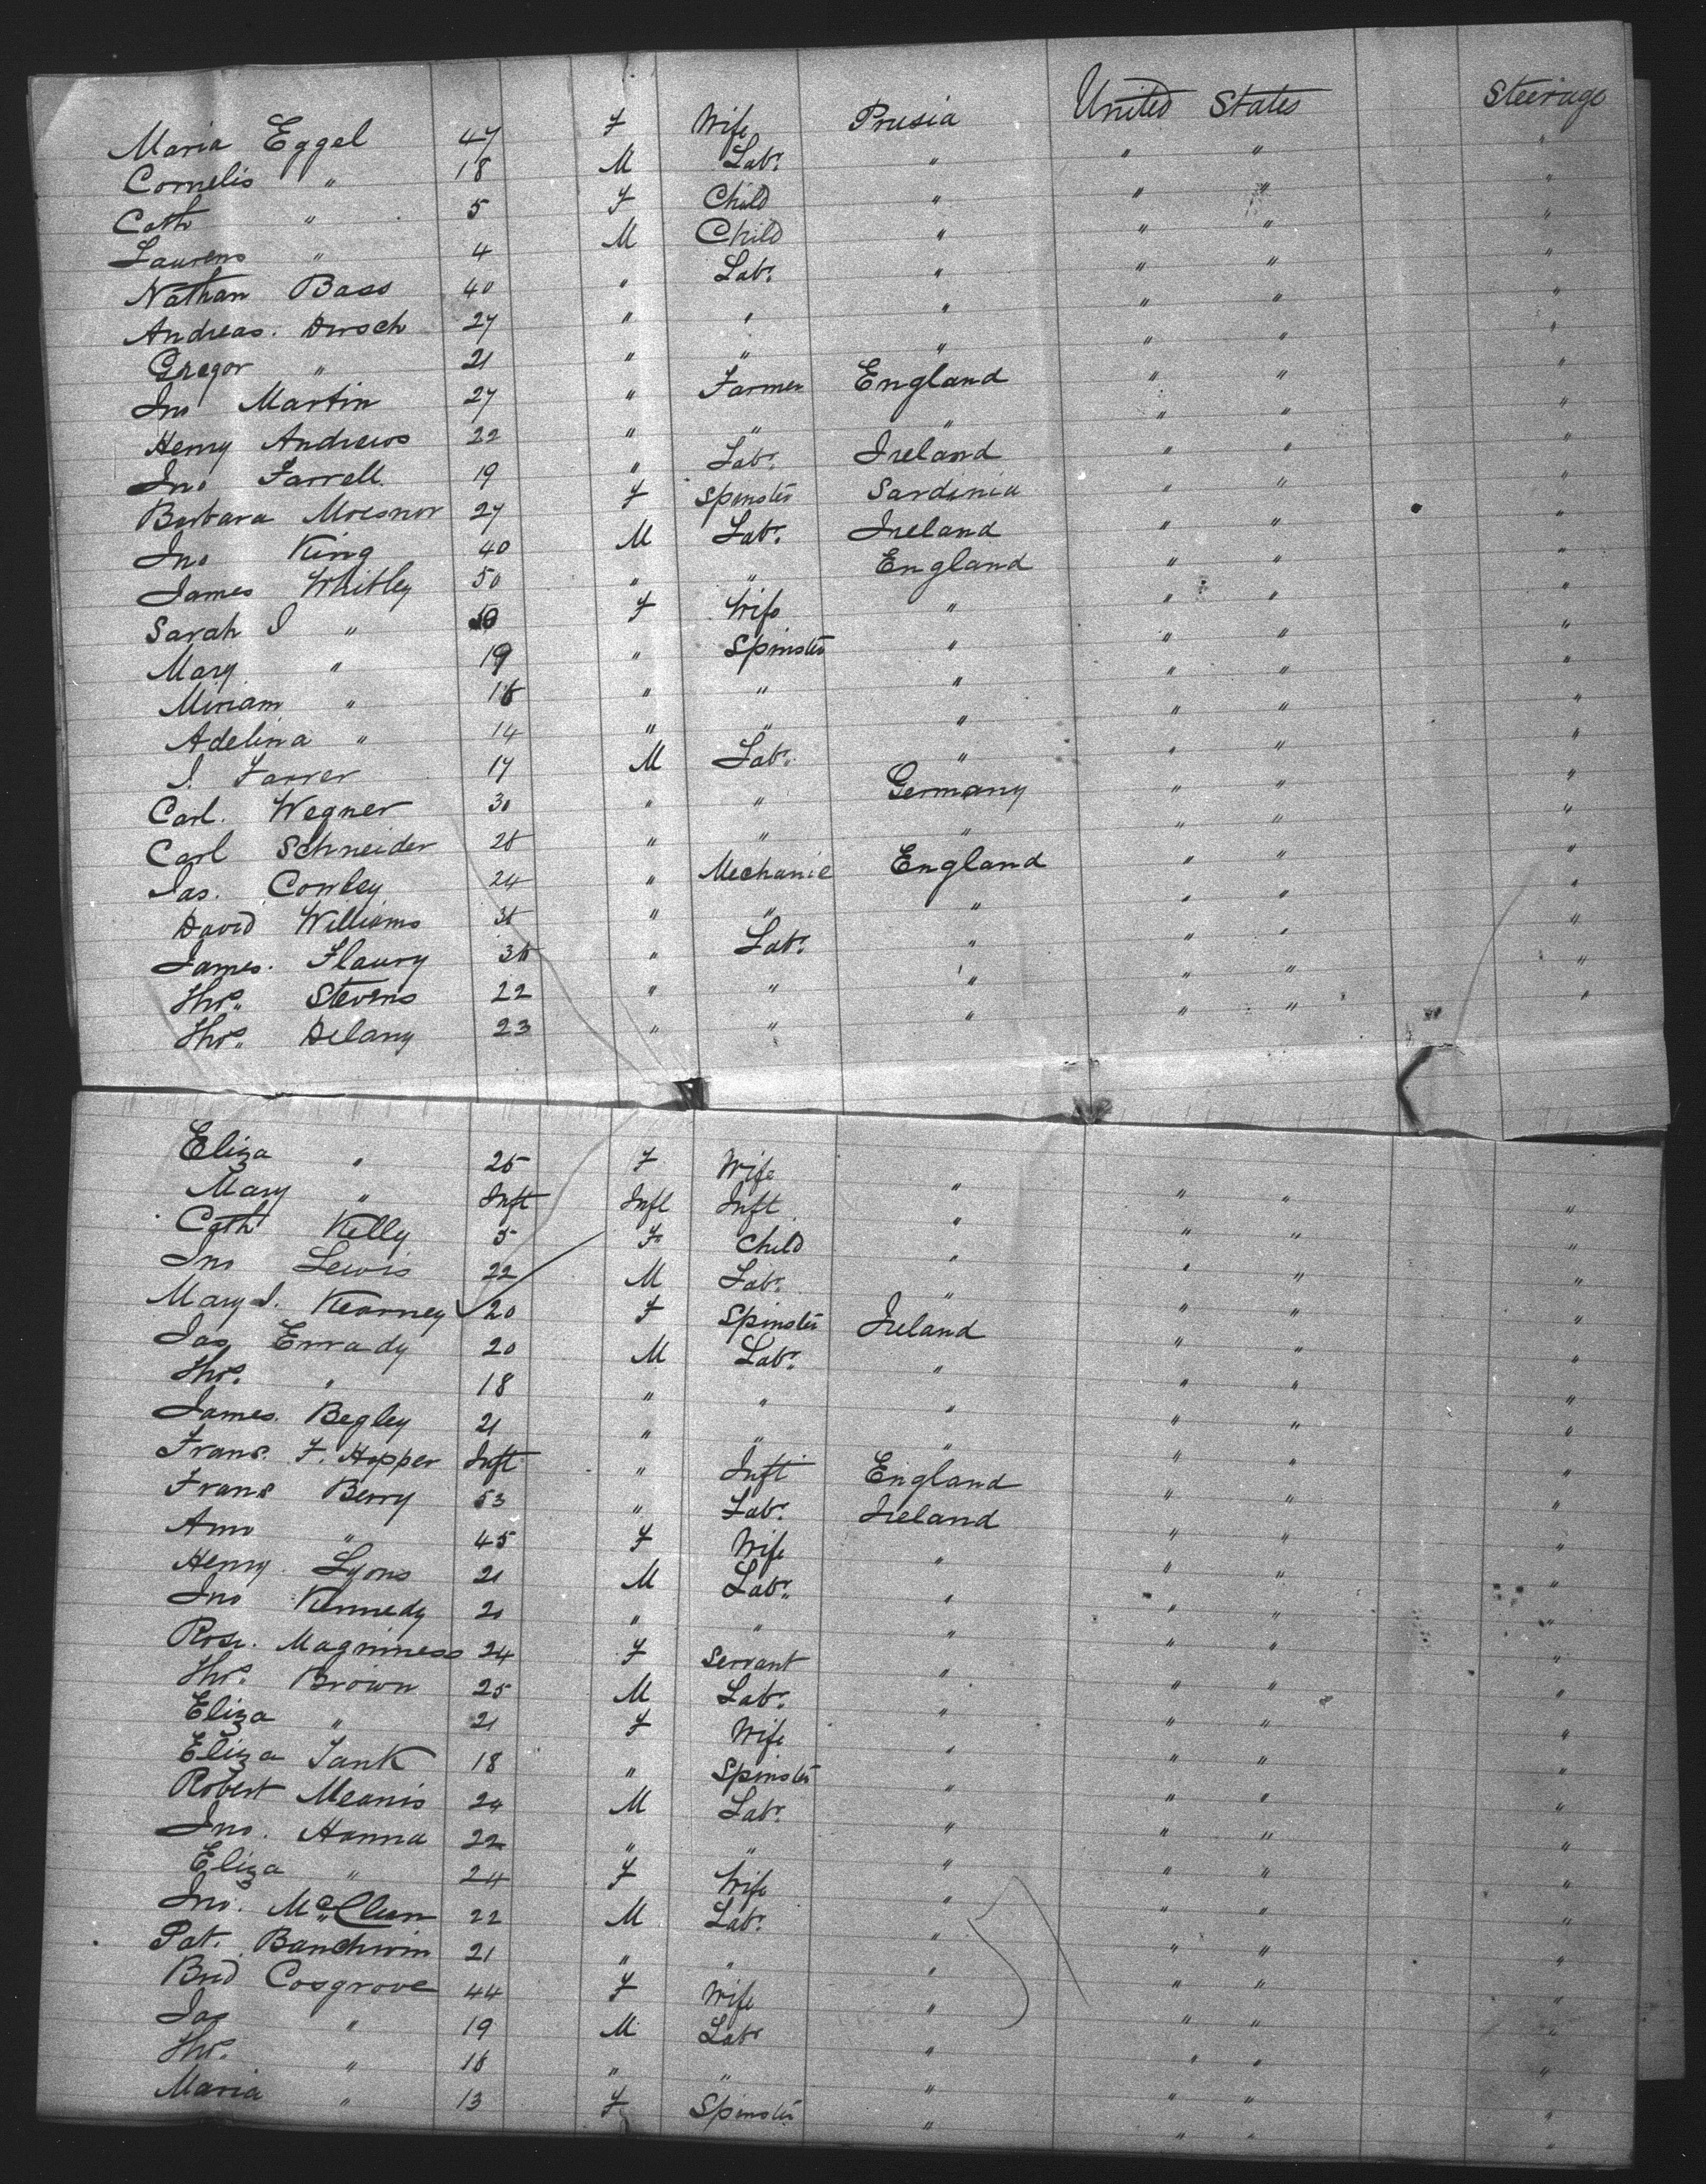 Maria Eggel 47 F Wife Prusia United States Steerage
Cornelis " 18 M Labr. " " " "
Cath " 5 F Child " " " "
Laurens " 4 M Child " " " "
Nathan Bass 40 " Labr. " " " "
Andreas. Dirsch 27 " " " " " "
Gregor " 21 " " " " " "
Jno Martin 27 " Farmer England " " "
Henry Andrews 22 " " " " " "
Jno Farrell 19 " Labr. Ireland " " "
Barbara 27 F Spinster Sardinia " " "
Jno King 40 M Labr. Ireland " " "
James Whitley 50 " " England " " "
Sarah J " F Wife " " " "
Mary " 19 " Spinster " " " "
Miriam " " " " " " "
Adelina " 14 " " " " " "
J. Farrer 17 M Labr. " " " "
Carl. Wegner 30 " " Germany " " "
Carl Schneider 28 " " " " " "
Jas. Cowley 24 " Mechanic England " " "
David Williams " " " " " "
James. Flaury " Labr. " " " "
Thos. Stevens 22 " " " " " "
Thos. Delany 23 " " " " " "
Eliza " 25 F Wife " " " "
Mary " Inft Inft Inft " " " "
Cath Kelly 5 F Child " " " "
Jno Lewis 22 M Labr. " " " "
Mary J. Kearney 20 F Spinster Ireland " " "
Jas Enrady 20 M Labr. " " " "
Thos. " 18 " " " " " "
James. Begley 21 " " " " " "
Frans. F. Hopper Inft " Inft England " " "
Frans Berry 53 " Labr. Ireland " " "
Ann " 45 F Wife " " " "
Henry Lyons 21 M Labr. " " " "
Jno Kennedy 20 " " " " " "
Rose. Maginness 24 F Servant " " " "
Thos. Brown 25 M Labr. " " " "
Eliza " 21 F Wife " " " "
Eliza Tank 18 " Spinster " " " "
Robert Meanis 24 M Labr. " " " "
Jno. Hanna 22 " " " " " "
Eliza " 24 F Wife " " " "
Jno. McClean 22 M Labr. " " " "
Pat. 21 " " " " " "
Brid Cosgrove 44 F Wife " " " "
Jas " 19 M Labr " " " "
Thos. " " " " " " "
Maria " 13 F Spinster " " " "